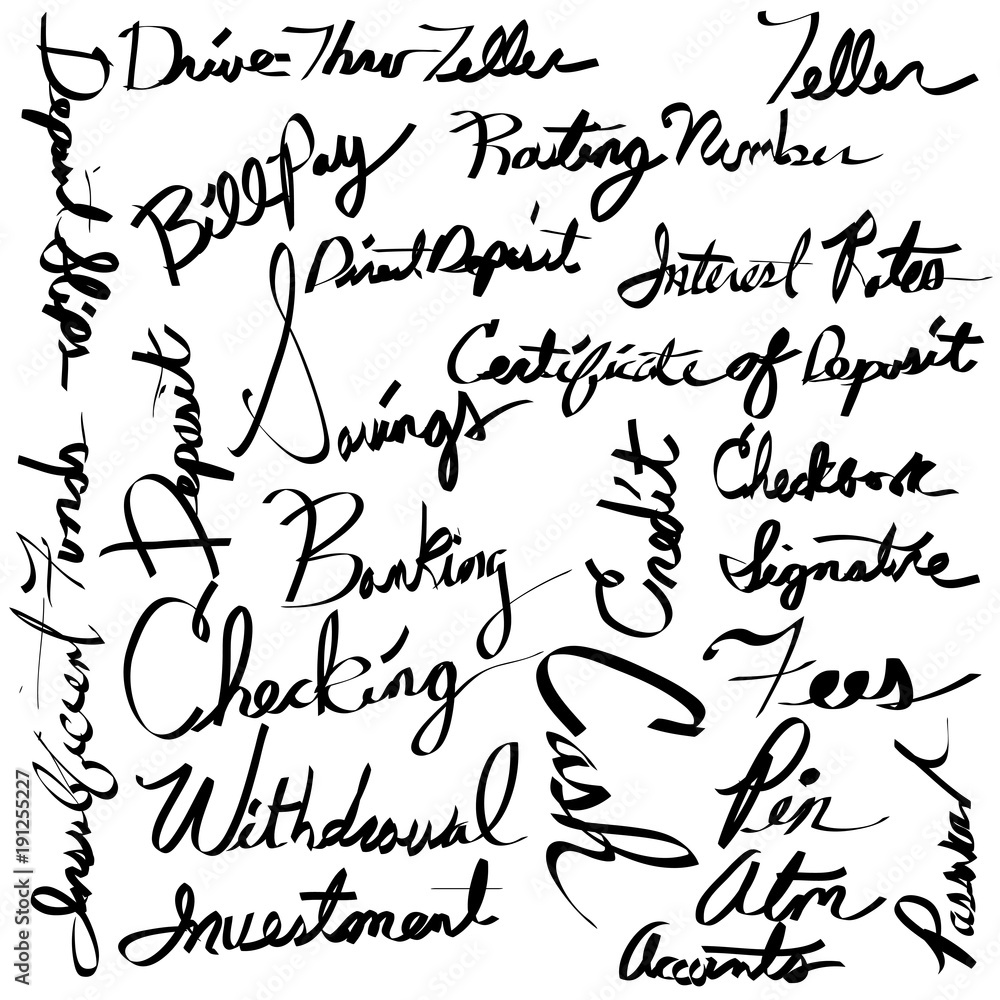 Drive-Thru Teller
Teller
Deposit Slips
Bill Pay
Routing Number
Direct Deposit
Interest Rates
Savings
Certificate of Deposit
Deposit
Checkbook
Credit
Insufficient Funds
Banking
Signature
Checking
Fees
Cash
Withdrawal
Pin
Password
Atm
Investment
Accounts
Adobe Stock | #191255227